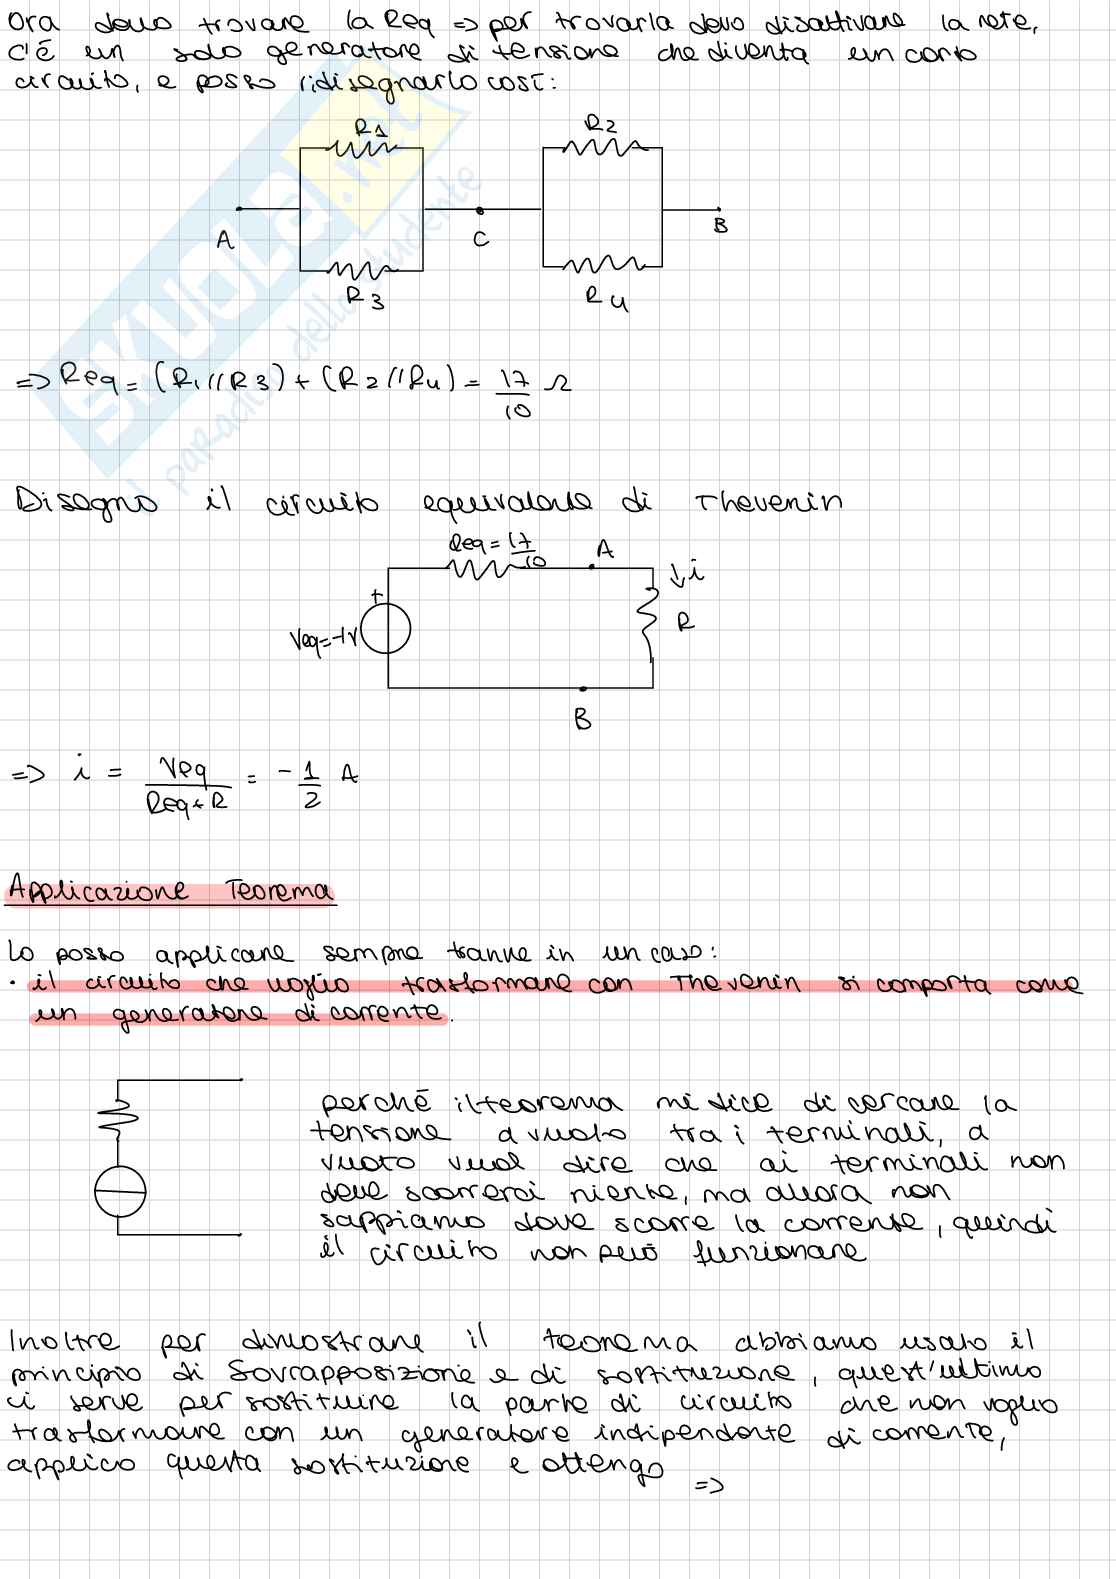 Ora devo trovare la Req => per trovarla devo disattivare la rete,
c'è un solo generatore di tensione che diventa un corto
circuito, e posso ridisegnarlo così:
R1
R2
A
C
B
R3
R4
=> Req = (R1//R3) + (R2//R4) = 17/10 Ω
Disegno il circuito equivalente di Thevenin
Req = 17/10
A
↓i
+
Veq=-1V
R
B
=> i = Veq/(Req+R) = -1/2 A
Applicazione Teorema
Lo posso applicare sempre tranne in un caso:
· il circuito che voglio trasformare con Thevenin si comporta come
un generatore di corrente.
perché il teorema mi dice di cercare la
tensione a vuoto tra i terminali, a
vuoto vuol dire che ai terminali non
deve scorrerci niente, ma allora non
sappiamo dove scorre la corrente, quindi
il circuito non può funzionare
Inoltre per dimostrare il teorema abbiamo usato il
principio di Sovrapposizione e di sostituzione, quest'ultimo
ci serve per sostituire la parte di circuito che non voglio
trasformare con un generatore indipendente di corrente,
applico questa sostituzione e ottengo =>
SKUOLA.net
il paradiso dello studente